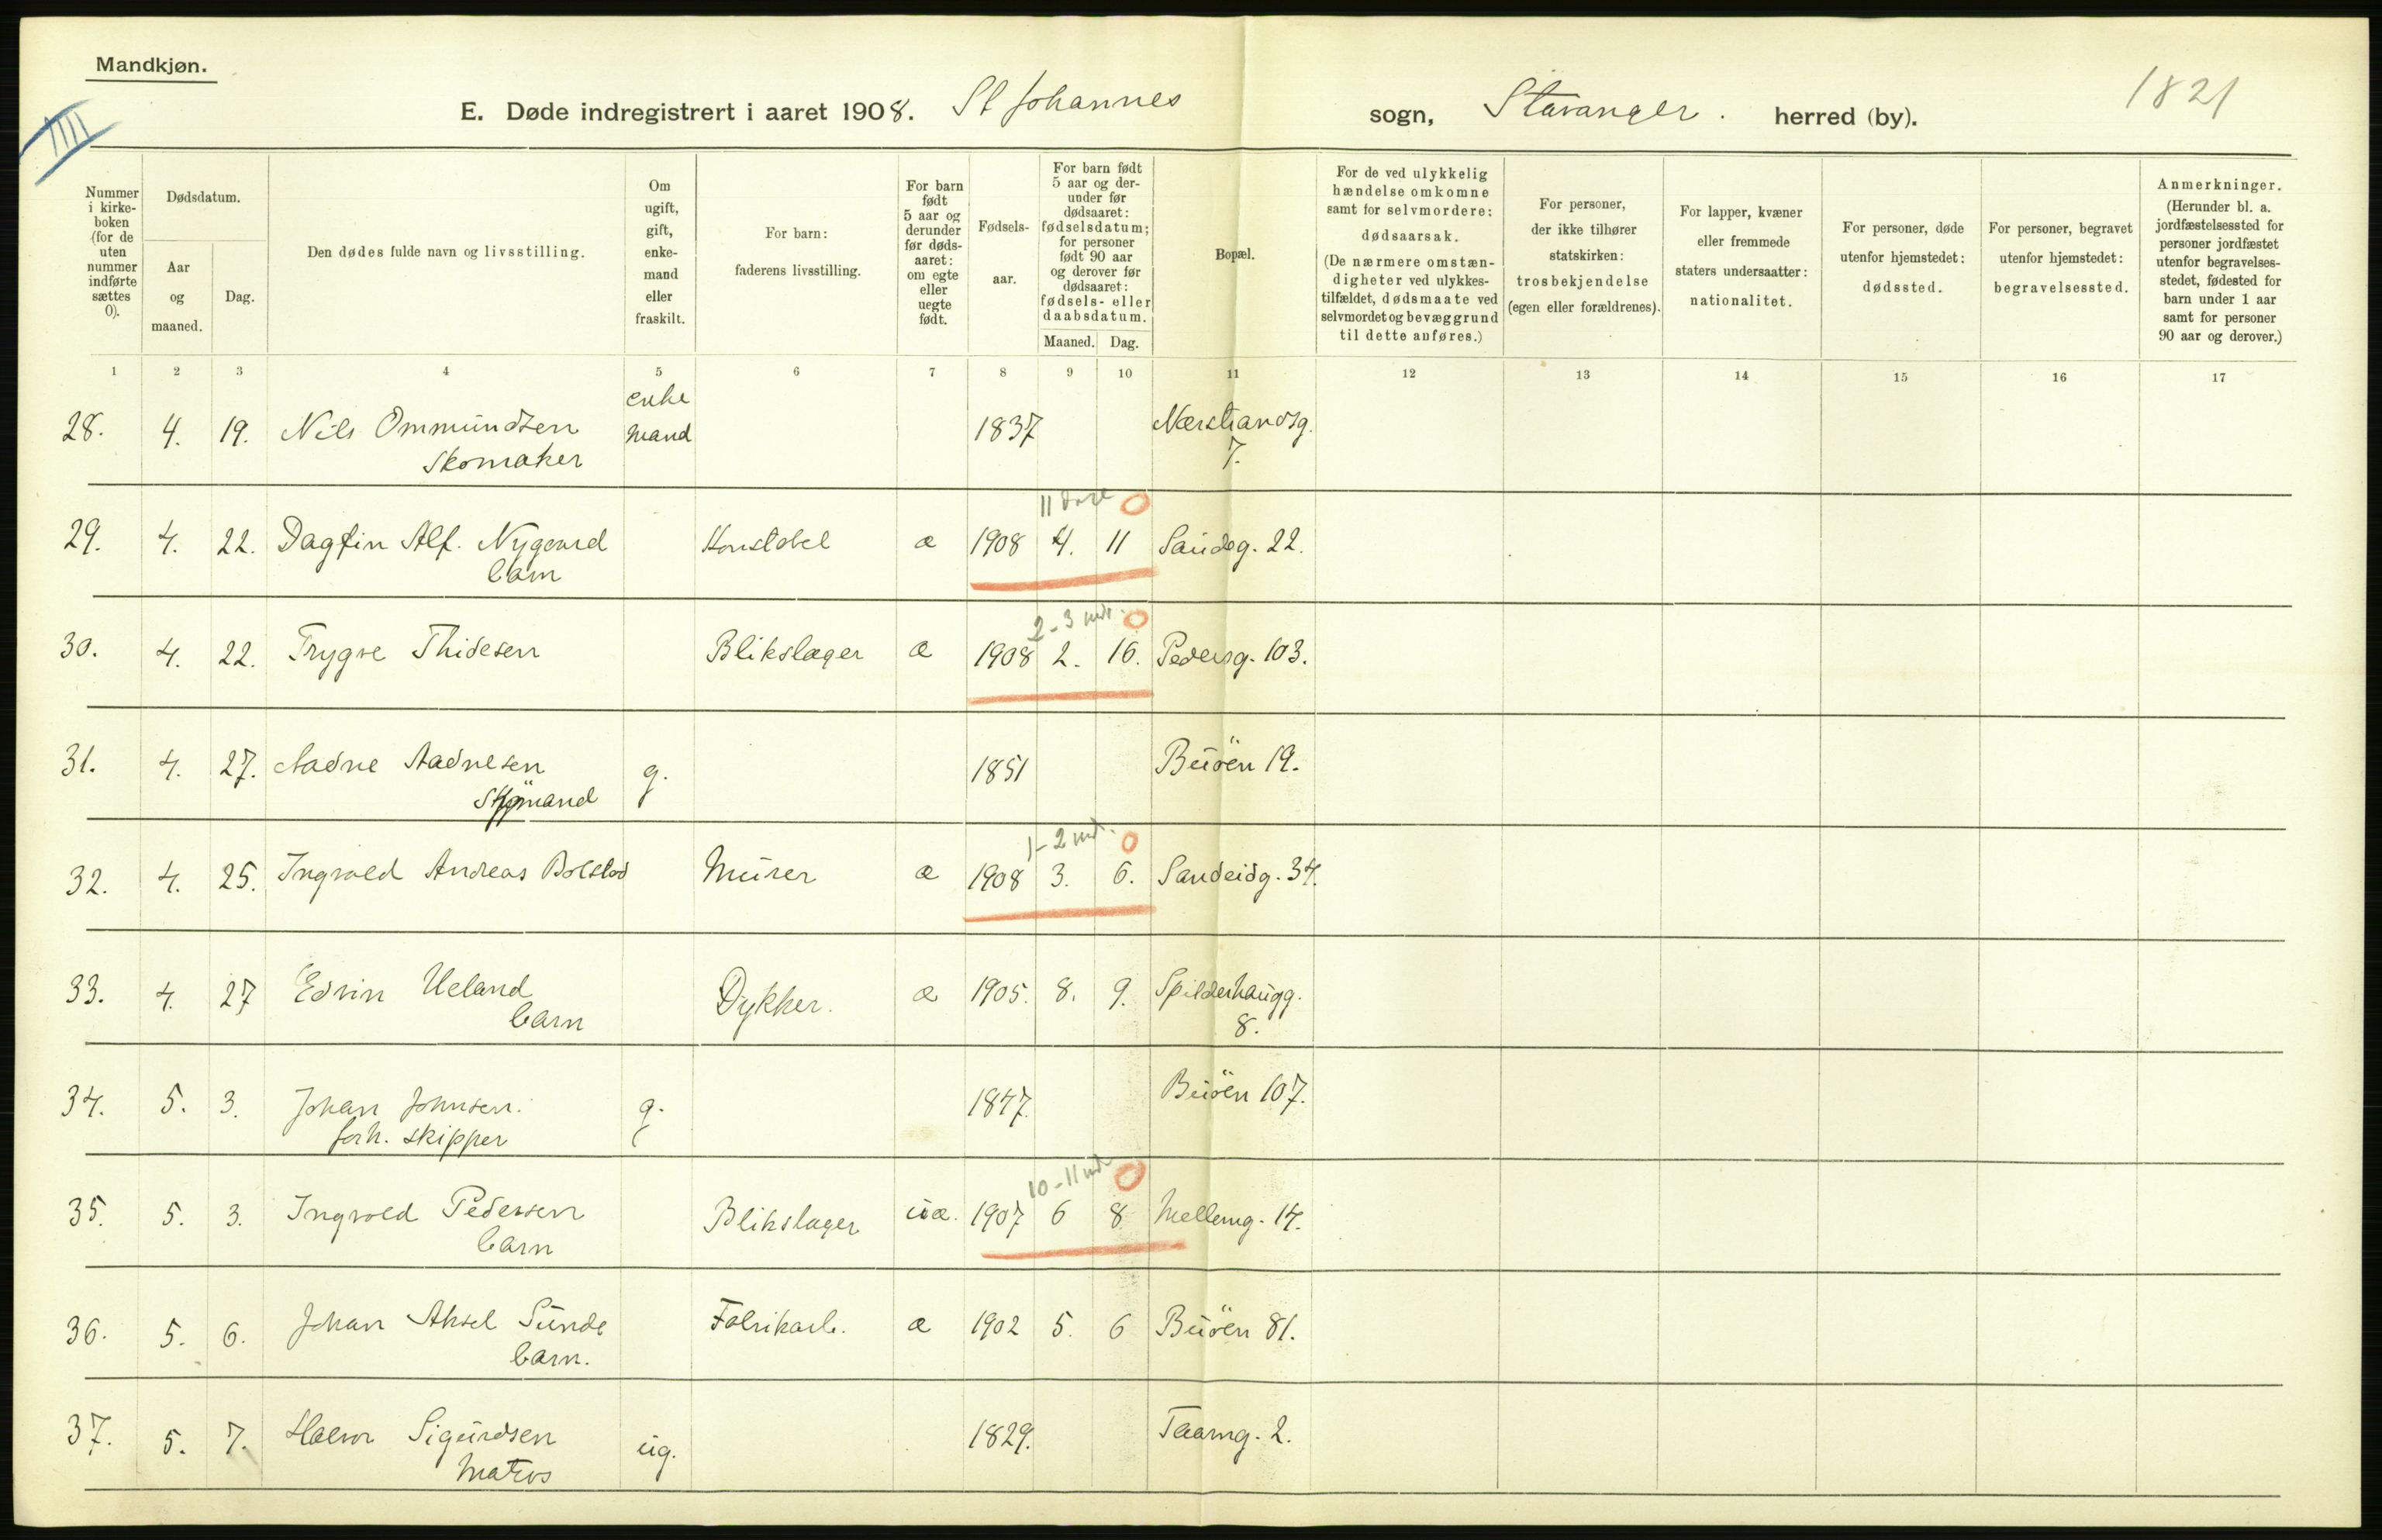 Mandkjøn.
E. Døde indregistrert i aaret 1908. St Johannes sogn, Stavanger. herred (by).
1821
IIII
Nummer i kirke- boken (for de uten nummer indførte sættes 0).
Dødsdatum.
Aar og maaned.
Dag.
Den dødes fulde navn og livsstilling.
Om ugift, gift, enke- mand eller fraskilt.
For barn: faderens livsstilling.
For barn født 5 aar og derunder før døds- aaret: om egte eller uegte født.
Fødsels- aar.
For barn født 5 aar og der- under før dødsaaret: fødselsdatum; for personer født 90 aar og derover før dødsaaret: fødsels- eller daabsdatum.
Maaned. Dag.
Bopæl.
For de ved ulykkelig hændelse omkomne samt for selvmordere: dødsaarsak. (De nærmere omstæn- digheter ved ulykkes- tilfældet, dødsmaate ved selvmordet og bevæggrund til dette anføres.)
For personer, der ikke tilhører statskirken: trosbekjendelse (egen eller forældrenes).
For lapper, kvæner eller fremmede staters undersaatter: nationalitet.
For personer, døde utenfor hjemstedet: dødssted.
For personer, begravet utenfor hjemstedet: begravelsessted.
Anmerkninger. (Herunder bl. a. jordfæstelsessted for personer jordfæstet utenfor begravelses- stedet, fødested for barn under 1 aar samt for personer 90 aar og derover.)
1 2 3 4 5 6 7 8 9 10 11 12 13 14 15 16 17
enke
28. 4. 19. Nils Ommundsen mand 1837 Nerstrandsg.
Skomaker 7.
11 dage
29. 4. 22. Dagfin Alf. Nygaard Konstabel æ 1908 4. 11 Sandsg. 22.
barn
2-3 md.
30. 4. 22. Trygve Thidesen Blikslager æ 1908 2. 16. Pedersg. 103.
31. 4. 27. Aadne Aadnesen g. 1851 Buöen 19.
Sjömand
1-2 md.
32. 4. 25. Ingvald Andreas Bolstad Murer æ 1908 3. 6. Sandeidg. 34.
33. 4. 27 Edvin Ueland Dykker. æ 1905. 8. 9. Spilderhaugg.
barn 8.
34. 5. 3. Johan Johnsen. g. 1847. Buöen 107.
forh. skipper
10-11 md
35. 5. 3. Ingvald Pedersen Blikslager uæ. 1907 6 8 Mellemg. 14.
barn
36. 5. 6. Johan Aksel Sunde Fabrikarb. æ 1902 5. 6 Buöen 81.
barn.
37. 5. 7. Halvor Sigurdsen ug. 1829. Taarng. 2.
Matros